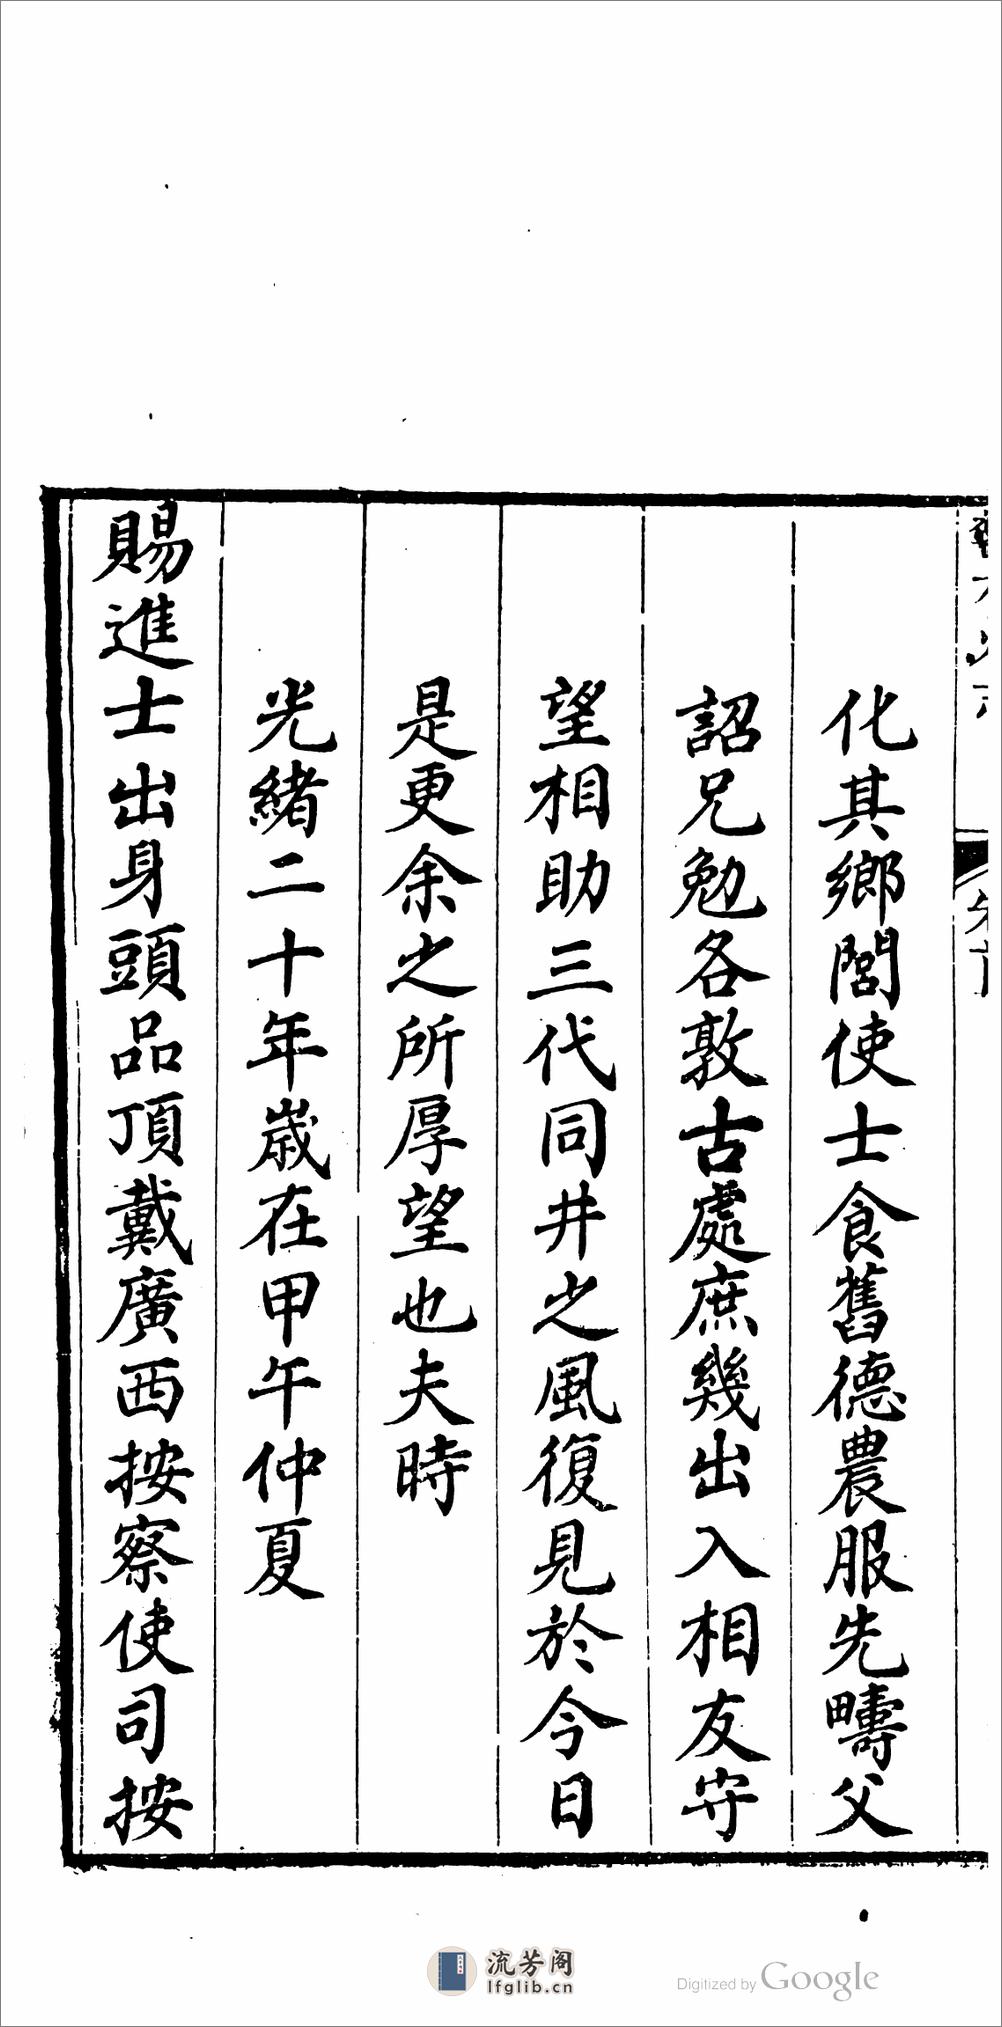 化其鄉閭使士食舊德農服先疇父
詔兄勉各敦古處庶幾出入相友守
望相助三代同井之風復見於今日
是更余之所厚望也夫時
光緒二十年歲在甲午仲夏
賜進士出身頭品頂戴廣西按察使司按
流芳阁
lfglib.cn
Digitized by Google